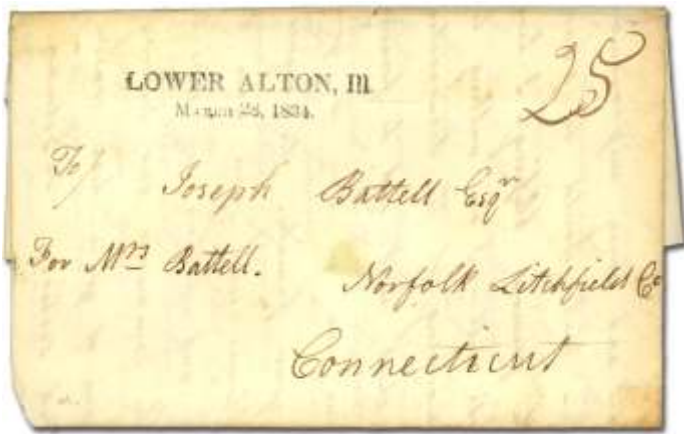 LOWER ALTON, Ill
March 28, 1834.
25
To/ Joseph Battell Esqr
For Mrs Battell.
Norfolk Litchfield Co
Connecticut